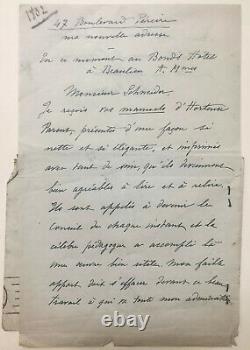 1902
47 Boulevard Péreire
ma nouvelle adresse
En ce moment au Bond's Hôtel
à Beaulieu A. Mmes
Monsieur Schneider
Je reçois vos manuels d'Hortense
Parent, présentés d'une façon si
nette et si élégante, et imprimés
avec tant de soin, qu'ils deviennent
bien agréables à lire et à relire.
Ils sont appelés à devenir le
conseil du chaque instant et la
célèbre pédagogue a accompli là
une œuvre bien utile. Mon faible
apport doit s'effacer devant ce beau
travail à qui va toute mon admiration
© ebay.com